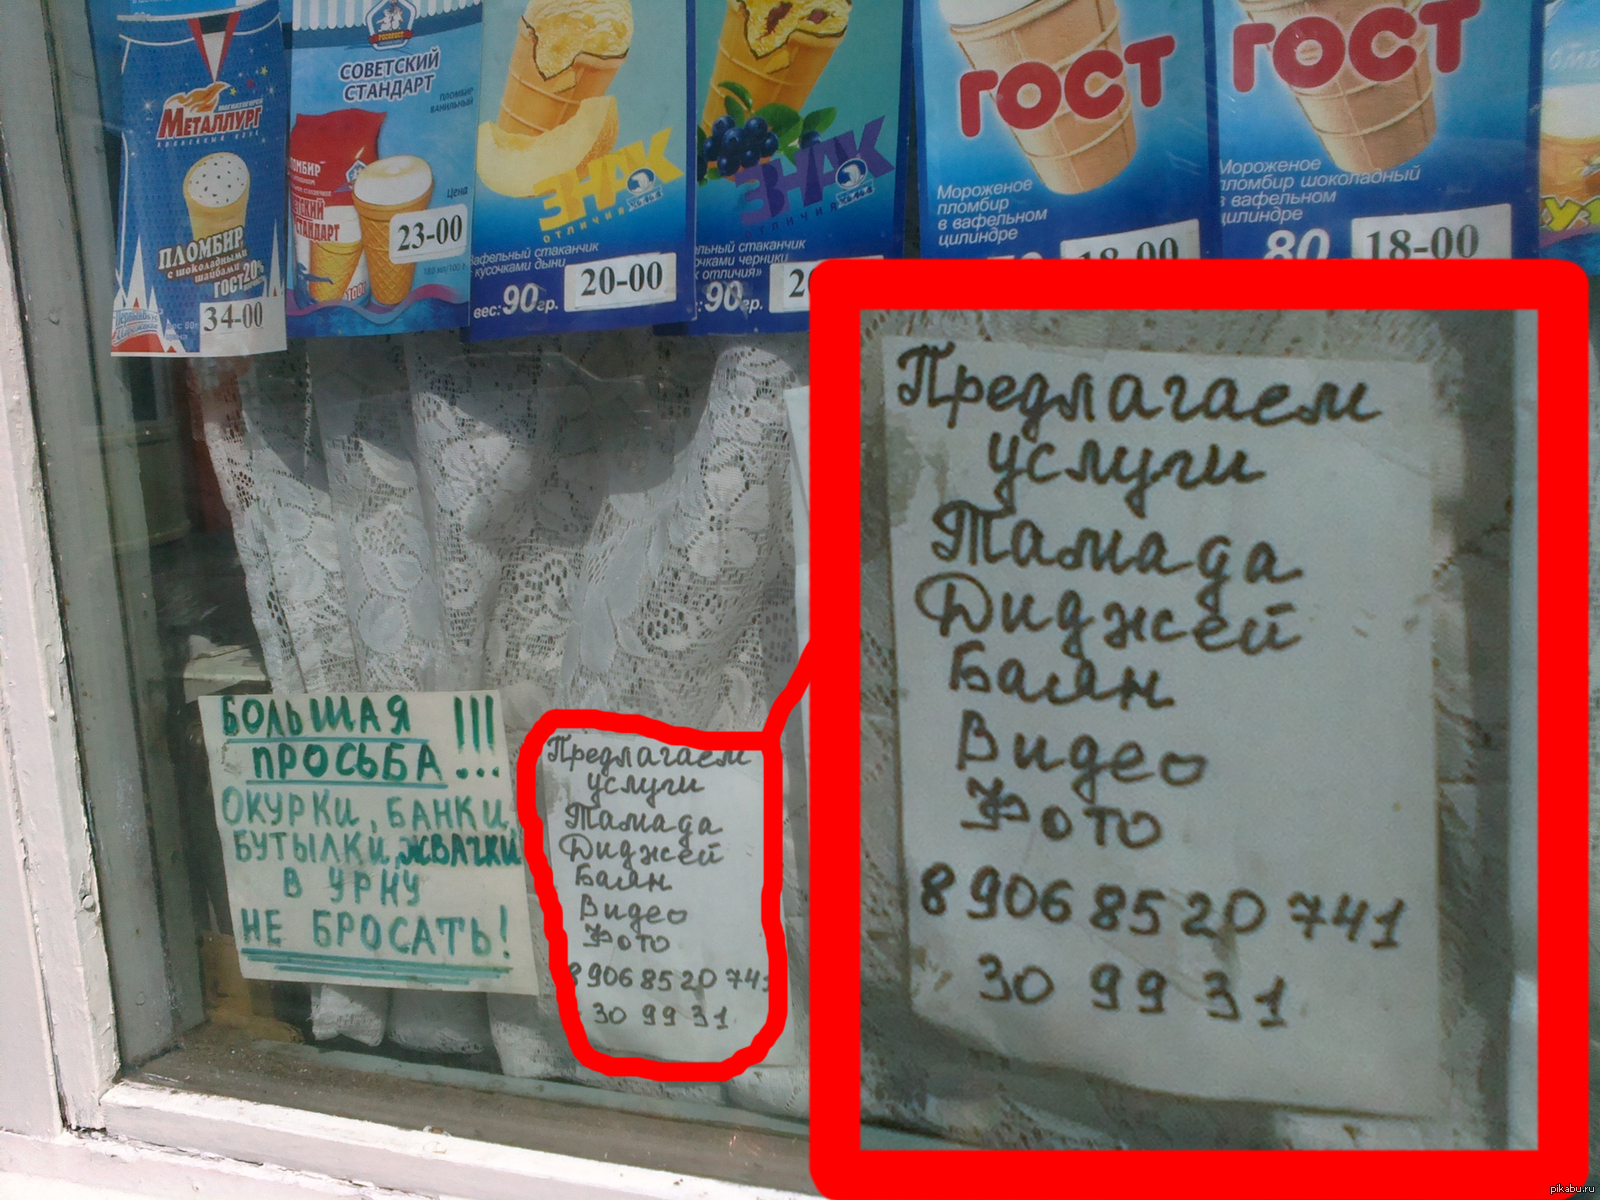 МАГНИТОГОРСК
МЕТАЛЛУРГ
ХОККЕЙНЫЙ КЛУБ
ПЛОМБИР
с шоколадными
шайбами
ГОСТ 20%
34-00
СОВЕТСКИЙ
СТАНДАРТ
ПЛОМБИР
ВАНИЛЬНЫЙ
Цена
23-00
ЗНАК
ОТЛИЧИЯ
вафельный стаканчик
кусочками дыни
вес: 90гр.
20-00
ЗНАК
ОТЛИЧИЯ
стаканчик
черники
отличия»
вес: 90гр.
ГОСТ
Мороженое
пломбир
в вафельном
цилиндре
18-00
ГОСТ
Мороженое
пломбир шоколадный
в вафельном
цилиндре
80
18-00
БОЛЬШАЯ !!!
ПРОСЬБА...
ОКУРКИ, БАНКИ,
БУТЫЛКИ, ЖВАЧКИ
В УРНУ
НЕ БРОСАТЬ!
Предлагаем
услуги
Тамада
Диджей
Баян
Видео
Фото
8 906 85 20 741
30 99 31
Предлагаем
услуги
Тамада
Диджей
Баян
Видео
Фото
8 906 85 20 741
30 99 31
pikabu.ru